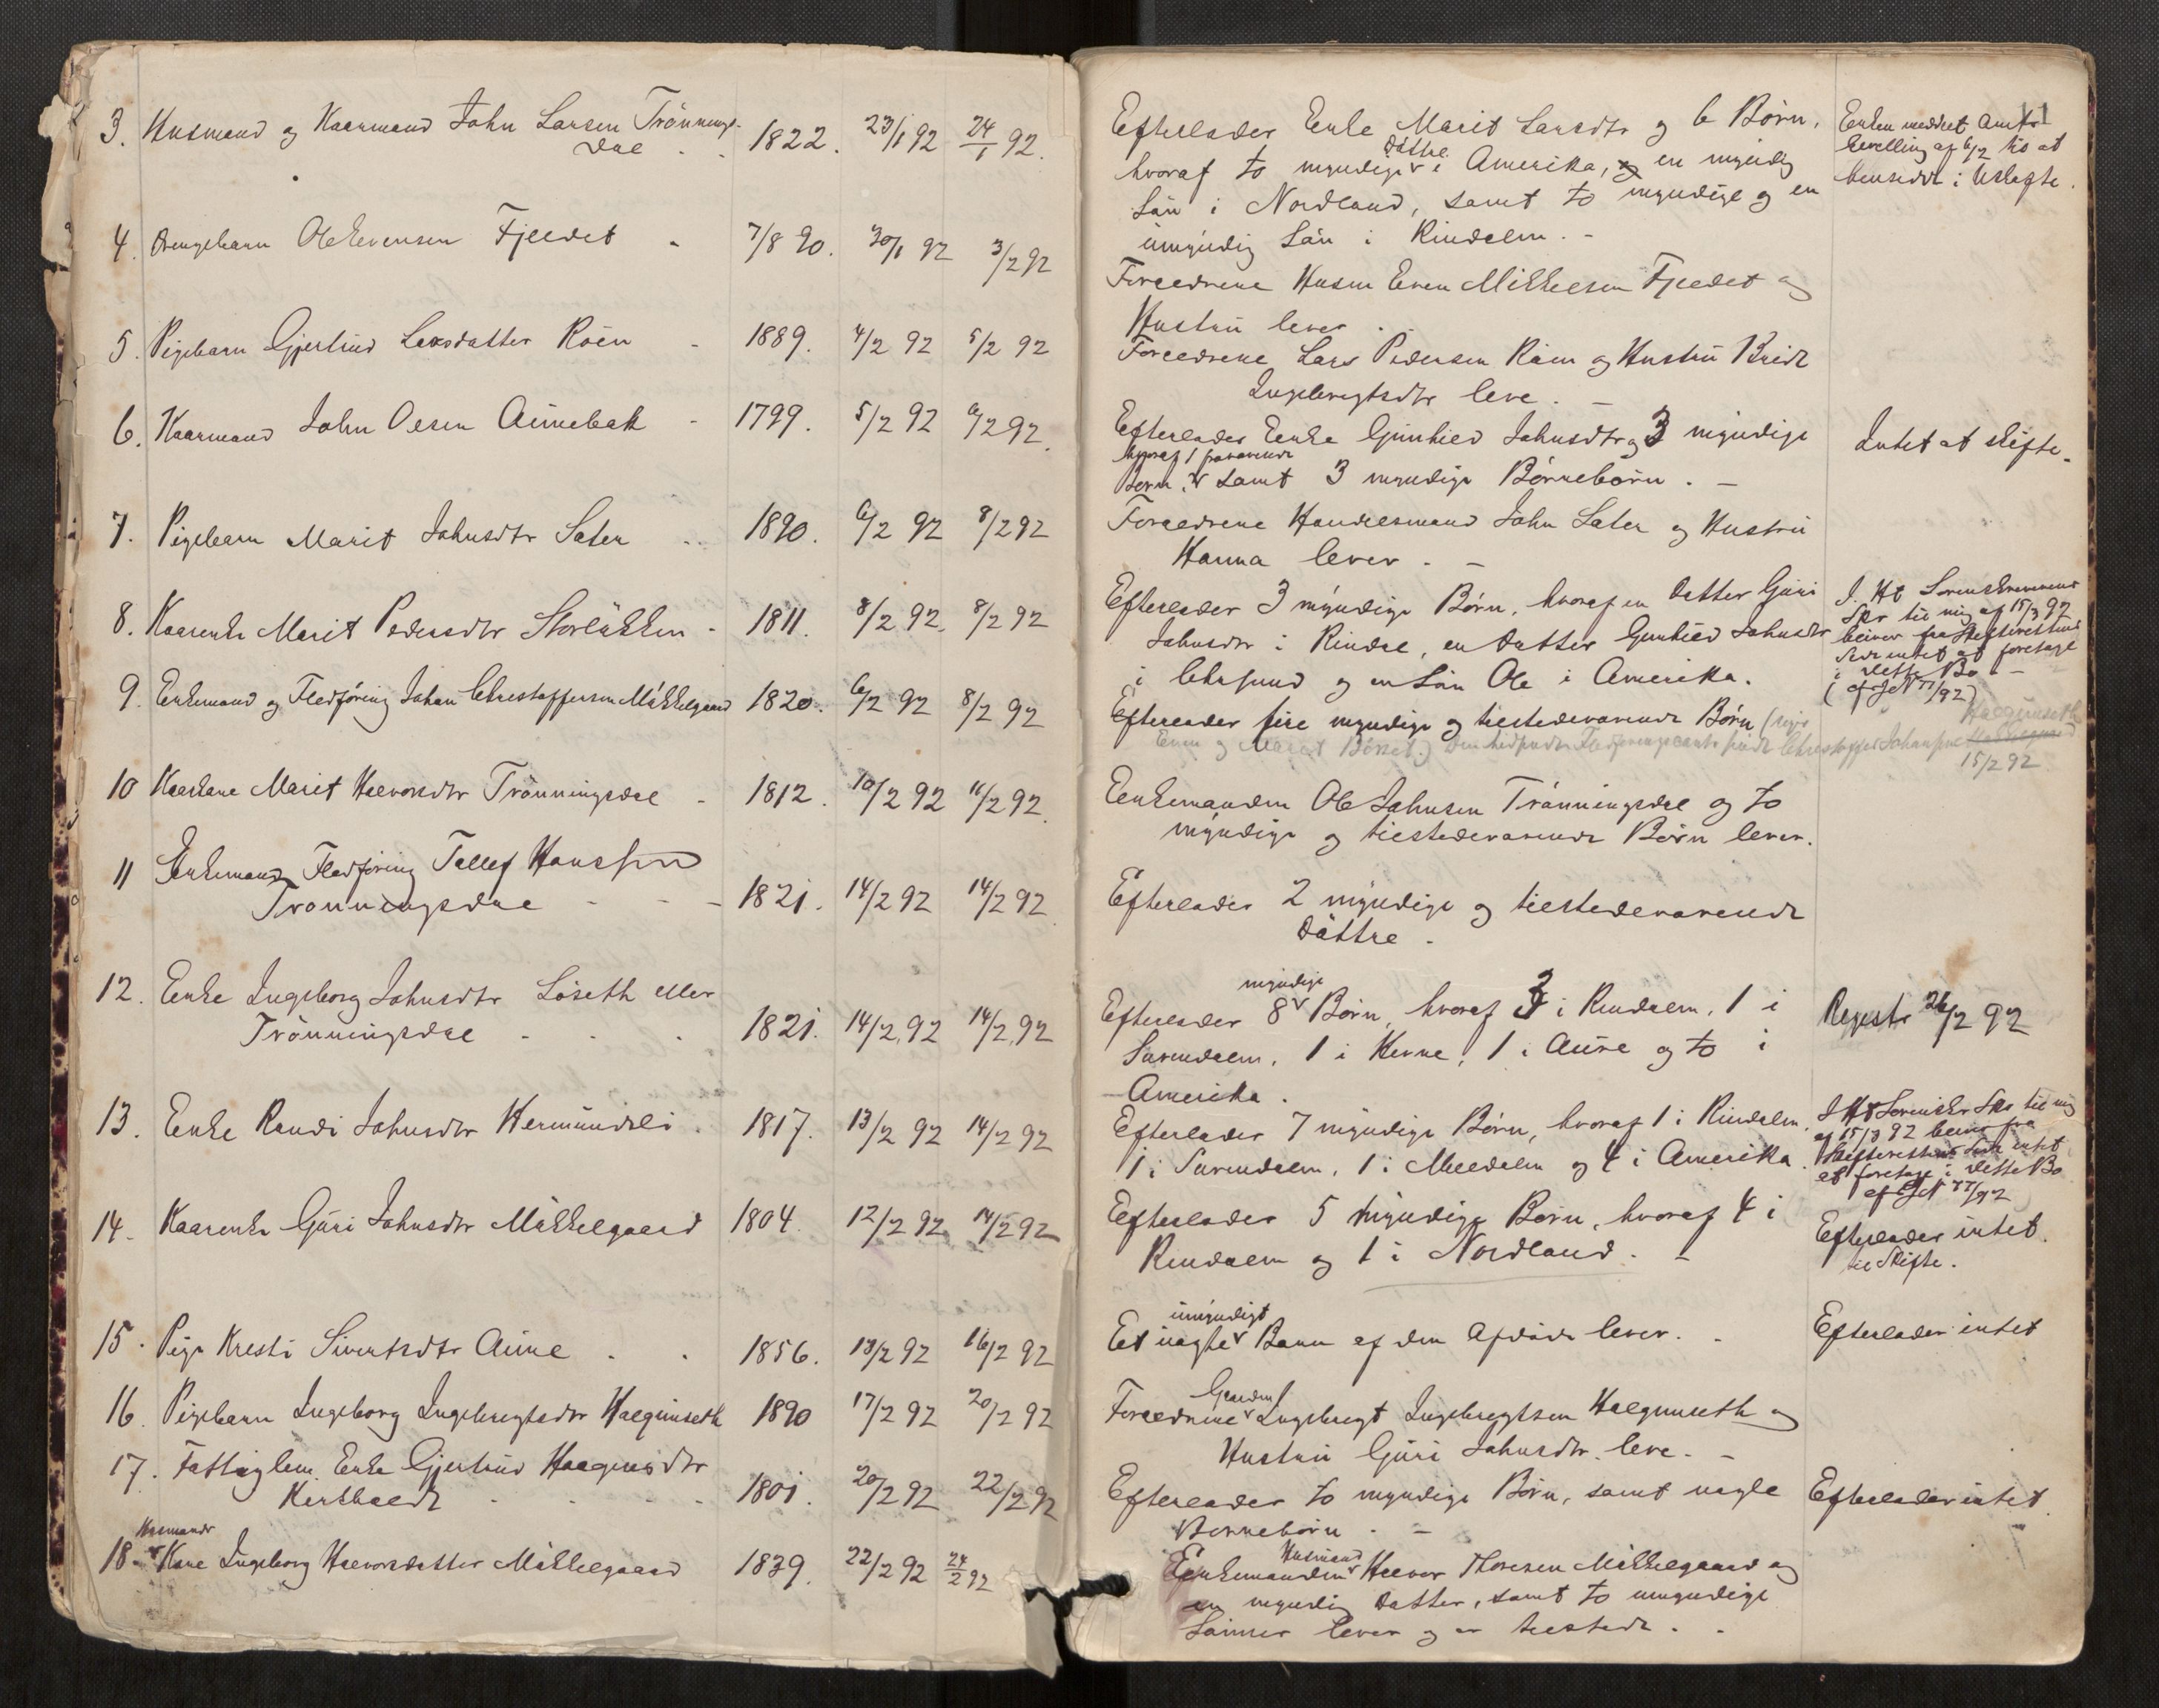 3. Husmand og Kaarmand John Larsen Trönnings-
dal - - 1822. 23/1 92 24/1 92.
4. Drengebarn Ole Evensen Fjeldet - 7/8 90. 30/1 92 3/2 92
5. Pigebarn Gjertrud Larsdatter Röen - 1889. 4/2 92 5/2 92
6. Kaarmand John Olsen Aünebak - 1799. 5/2 92 6/2 92.
7. Pigebarn Marit Johnsdtr Sæter - 1890. 6/2 92 8/2 92
8. Kaarenke Marit Pedersdtr Storlökken - 1811. 8/2 92. 8/2 92
9. Enkemand og Fledföring Johan Christophersen Mikkelgaard 1820. 6/2 92 8/2 92
10 Kaarkone Marit Halvorsdtr Trönningsdal - 1812. 10/2 92 11/2 92.
11 Enkemand Fledföring Tollef Hanssen
Tronningsdal - - - 1821. 14/2 92 14/2 92.
12. Enke Ingeborg Johnsdtr Löseth eller
Trönningsdal - - - 1821. 14/2 92 14/2 92
13. Enke Randi Johnsdtr Hermündsli. 1817. 13/2 92 14/2 92
14. Kaarenke Güri Johnsdtr Mikkelgaard 1804. 12/2 92 14/2 92
15. Pige Kresti Sivertsdtr Aüne - - 1856. 13/2 92 16/2 92
16. Pigebarn Ingeborg Ingebrigtsdtr Halgünseth 1890 17/2 92 20/2 92
17. Fattiglem Enke Gjertrüd Haagensdtr
- - - - 1801. 20/2 92 22/2 92
Husmands
18 - Kone Ingeborg Halvorsdatter Mikkelgaard 1839. 22/2 92 24/2 92
Efterlader Enke Marit Larsdtr og 6 Börn,
Döttre
hvoraf to myndige i Amerika, og en myndig
Sön i Nordland, samt to myndige og en
ümyndig Sön i Rindalen. -
Forældrene Husm Even Mikkelsen Fjeldet og
Hustrü lever.
Forældrene Lars Pedersen Röen og Hustrü Brit
Ingebrigtsdtr leve. -
Efterlader Enke Günhild Johnsdtr og 3 myndige
hvoraf 1 fraværende
Börn, samt 3 myndige Börnebörn. -
Forældrene Handelsmand John Sæter og Hustrü
Hanna lever. -
Efterlader 3 myndige Börn, hvoraf en Datter Güri
Johnsdtr i Rindal, en Datter Gunhild Johnsdtr
i Chrsund og en Sön Ole i Amerika.
Efterlader fire myndige og tilstedeværende Börn
Even og Marit
15/2 92
Enkemanden Ole Johnsen Trönningsdal og to
myndige og tilstedeværende Börn lever.
Efterlader 2 myndige og tilstedeværende
Döttre.
myndige
Efterlader 8 Börn, hvoraf 3 i Rindalen, 1 i
Surendalen, 1 i Hevne, 1 i Aüre og to i
Amerika.
Efterlader 7 myndige Börn, hvoraf 1 i Rindalen,
1 i Surendalen, 1 i Meldalen og 4 i Amerika.
Efterlader 5 myndige Börn, hvoraf 4 i
Rindalen og 1 i Nordland. -
ümyndigt
Et üægte Barn af den Afdöde lever. -
Gaardm
Forældrene Ingebrigt Ingebrigtsen Halgunseth og
Hustrü Güri Johnsdtr. leve. -
Efterlader to myndige Börn, samt nogle
Börnebörn. -
Husmand
Enkemanden Halvor Thoresen Mikkelgaard og
en myndig Datter, samt to umyndige
Sönner lever og er tilstede. -
11
Enken meddelt Amts-
bevilling af 6/2 til at
hensidde i Uskifte.
Intet at skifte.
I. Ht Sorenskriverens
Skr til mig af 15/3 92
bliver fra Skifterettens
Side intet at foretage
i dette Bo -
(cf J N 77/92)
Halgunseth
Registr 26/2 92
I Ht Sorenskr Skr til mig
af 15/3 92 bliver fra
Skifterettens Side intet
at foretage i dette Bo
cf J N 77/92
Efterlader intet
til Skifte.
Efterlader intet
Efterlader intet.